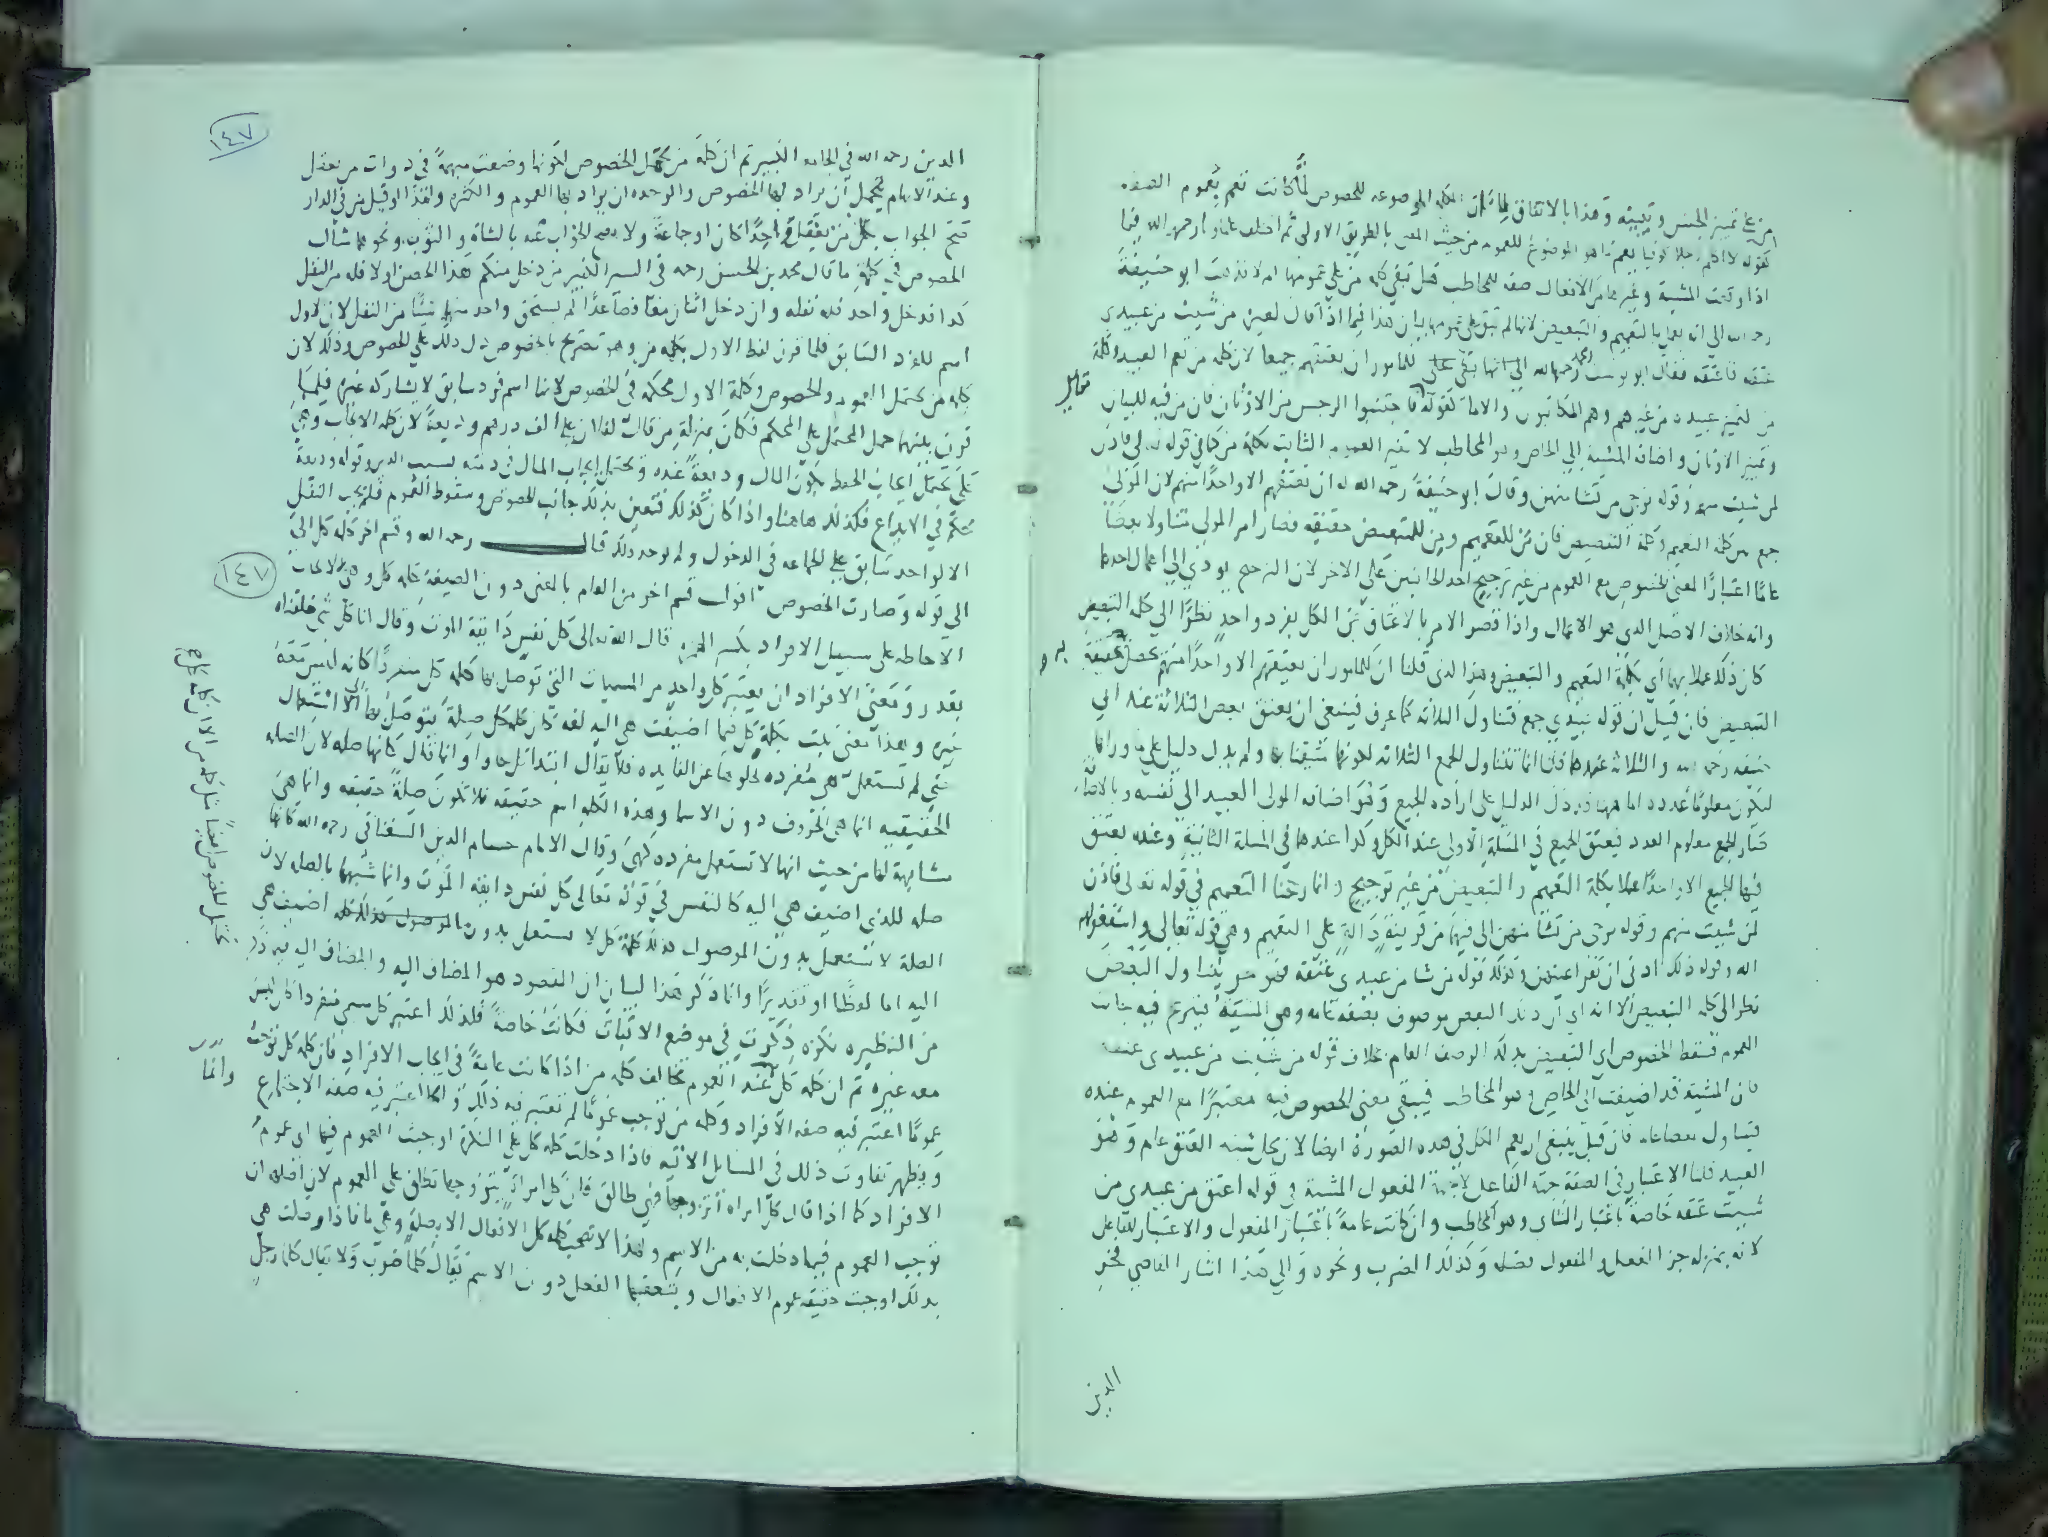 من على تمييز الجنس وتبيينه وهذا بالاتفاق الكلمة الموضوعه للخصوص لما كانت تعم بعموم الصفه
كقوله لا اكلم رجلا كوفيا يعم ما هو الموضوع للعموم من حيث المعنى بالطريق الاولى ثم اختلف علماونا رحمهم الله فيما
اذا وقعت المشية وغيرها من الافعال صفه للمخاطب هل تبقى كلمة من على عمومها ام لا فذهب ابو حنيفة
رحمه الله الى انه يعمل بالتعميم والتبعيض لانها لم تبق على عمومها بيان هذا فيما اذا قال لغيره من شئت من عبيدي
عتقه فاعتقه فقال ابو يوسف ومحمد رحمهما الله الى انها تبقى للمامور ان يعتقهم جميعا لان كلمة من تعم العبيد وكلمة
من لتمييز عبيده من غيرهم وهم المكاتبون والاما كقوله تعالى فاجتنبوا الرجس من الاوثان فان من فيه للبيان
وتمييز الاوثان واضافة المشية الى الخاص وهو المخاطب لا تغير العموم الثابت بكلمة من كما في قوله تعالى فاذن
لمن شئت منهم وقوله ترجي من تشا منهن وقال ابو حنيفة رحمه الله له ان يعتقهم الا واحدا منهم لان المولى
جمع بين كلمة التعميم وكلمة التبعيض فان من للتعميم ومن للتبعيض حقيقة فصار امر المولى متناولا بعضا
عاما اعتبارا لمعنى الخصوص مع العموم من غير ترجيح احد الجانبين على الاخر لان الترجيح يودي الى اهمال احدهما
وانه خلاف الاصل الذي هو الاعمال واذا قصر الامر بالاعتاق عن الكل بفرد واحد نظرا الى كلمة التبعيض
كان ذلك عملا بهما اي بكلمة التعميم والتبعيض وهذا الذي قلنا ان للمامور ان يعتقهم الا واحدا منهم يحصل حقيقة
التبعيض فان قيل ان قوله عبيدي جمع فتناول الثلاثة كما عرف فينبغي ان يعتق بعض الثلاثة عند ابي
حنيفه رحمه الله والثلاثة عندهما قلنا انما تتناول الجمع الثلاثة لكونها متيقنا بها ولم يدل دليل على ما وراها
ليكون معلوما عدده اما هاهنا قد دل الدليل على ارادة الجميع وهو اضافة المولى العبيد الى نفسه وبالاضافة
صار الجمع معلوم العدد فيعتق الجميع في المسئلة الاولى عند الكل وكذا عندهما في المسلة الثانية وعنده يعتق
فيها الجميع الا واحدا عملا بكلمة التعميم والتبعيض من غير ترجيح وانما رجحنا التعميم في قوله تعالى فاذن
لمن شئت منهم وقوله ترجي من تشا منهن الى فيهما من قرينة دالة على التعميم وهي قوله تعالى واستغفر لهم
الله وقوله ذلك ادنى ان تقر اعينهن وكذلك قوله من شا من عبيدي عتقه فهو حر يتناول البعض
نظرا الى كلمة التبعيض الا انه اي ان ذلك البعض موصوف بصفة عامه وهي المشيئة فيترجح فيه جانب
العموم فسقط الخصوص اي التبعيض بذلك الوصف العام بخلاف قوله من شئت من عبيدي عتقه
فان المشيئة قد اضيفت الى الخاص وهو المخاطب فيبقى معنى الخصوص فيه معتبرا مع العموم عنده
فيتناول بعضا عاما فان قيل ينبغي ان يعم الكل في هذه الصورة ايضا لان محل مشيه العتق عام وهو
العبيد قلنا الاعتبار في الصفة جهة الفاعل لا جهة المفعول المشية في قوله اعتق من عبيدي من
شيت عتقه خاصة باعتبار الشاي وهو المخاطب وان كانت عامة باعتبار المفعول والاعتبار للفاعل
لانه بمنزله جز الفعل والمفعول فضله وكذلك الضرب ونحوه والى هذا اشار القاضي فخر
الدين
الدين رحمه الله في الجامع الكبير ثم ان كلمة من تحتمل الخصوص لكونها وضعت مبهمة في ذوات من يعقل
وعند الابهام يحتمل ان يراد بها الخصوص والوحده ان يراد بها العموم والكثره ولهذا لو قيل من في الدار
صح الجواب بكل من يعقل واحدا كان او جماعة ولا يصح الجواب عنه بالشاة والثوب ونحوهما مثال
الخصوص في كلمة ما قال محمد بن الحسن رحمه الله في السير الكبير من دخل منكم هذا الحصن اولا فله من النفل
كذا فدخل واحد فله نفله وان دخل اثنان معا فصاعدا لم يستحق واحد منهم شيئا من النفل لان الاول
اسم للفرد السابق فلما قرن لفظ الاول بكلمة من وهو تصريح بالخصوص دل ذلك على الخصوص وذلك لان
كلمة من تحتمل العموم والخصوص وكلمة الاول محكمه في الخصوص لانها اسم فرد سابق لا يشاركه غيره فلما
قرن بينهما حمل المحتمل على المحكم فكان بمنزلة من قال لفلان علي الف درهم وديعة لان كلمة الايجاب وهي
علي تحتمل ايجاب الحفظ بكون المال وديعة عنده وتحتمل ايجاب المال في ذمته لسبب الدين وقوله وديعة
محكم في الايداع فكذلك هاهنا واذا كان كذلك فتعين بذلك جانب الخصوص وسقوط العموم فلم يجب النفل
الا لواحد سابق على الجماعه في الدخول ولم يوجد ذلك قال رحمه الله وقسم اخر كلمة كل الى
الى قوله وصارت للخصوص اقول قسم اخر من العام بالمعنى دون الصيغه كلمة كل وهي لايجاب
الاحاطه على سبيل الافراد بكسر الهمزه قال الله تعالى كل نفس ذايقة الموت وقال انا كل شي خلقناه
بقدر ومعنى الافراد ان يعتبر كل واحد من المسميات التي توصل بها كلمة كل منفردا كانه ليس معه
غيره وهذا معنى ثبت بكلمة كل فيما اضيفت هي اليه لغه كان كلمة كل صلة يتوصل بها الى الاستعمال
حتى لم تستعمل هي مفرده لخلوها عن الفايده فلا يقال ابتدا كل جاوا وانما قال كانها صله لان الصله
الحقيقيه انما هي الحروف دون الاسما وهذه الكلمة اسم حقيقه فلا تكون صلة حقيقه وانما هي
مشابهة لها من حيث انها لا تستعمل مفرده كهي وقال الامام حسام الدين السغناقي رحمه الله كانها
صله للذي اضيف هي اليه كالنفس في قوله تعالى كل نفس ذايقه الموت وانما شبهها بالصله لان
الصلة لا تستعمل بدون الموصول فكذلك كلمة كل لا تستعمل بدون اضيف هي
اليه اما لفظا او تقديرا وانما ذكر هذا لبيان ان المقصود هو المضاف اليه والمضاف اليه فيه
من النظيره نكره ذكرت في موضع الاثبات فكانت خاصة فلذلك اعتبر كل مسمى منفردا كان ليس
معه غيره ثم ان كلمة كل عند العموم تخالف كلمة من اذا كانت عامة في ايجاب الافراد فان كلمة كل توجب
عموما اعتبر فيه صفه الافراد وكلمة من توجب عموما لم تعتبر فيه ذلك وانما اعتبر فيه صفه الاجتماع
ويظهر تفاوت ذلك في المسايل الاتيه فاذا دخلت كلمة كل على النكرة اوجبت العموم فيها اي عموم
الافراد كما اذا قال كل امراه اتزوجها فهي طالق فان كل امراة يتزوجها تطلق على العموم لان اصلها ان
توجب العموم فيما دخلت به من الاسم ولهذا لا تصحب كلمة كل الافعال الا بصلة وهي ما فاذا وصلت هي
بذلك اوجبت حقيقه عموم الافعال ويتعقبها الفعل دون الاسم يقال كلما ضرب ولا يقال كلما رجل
١٤٧
١٤٧
وانما